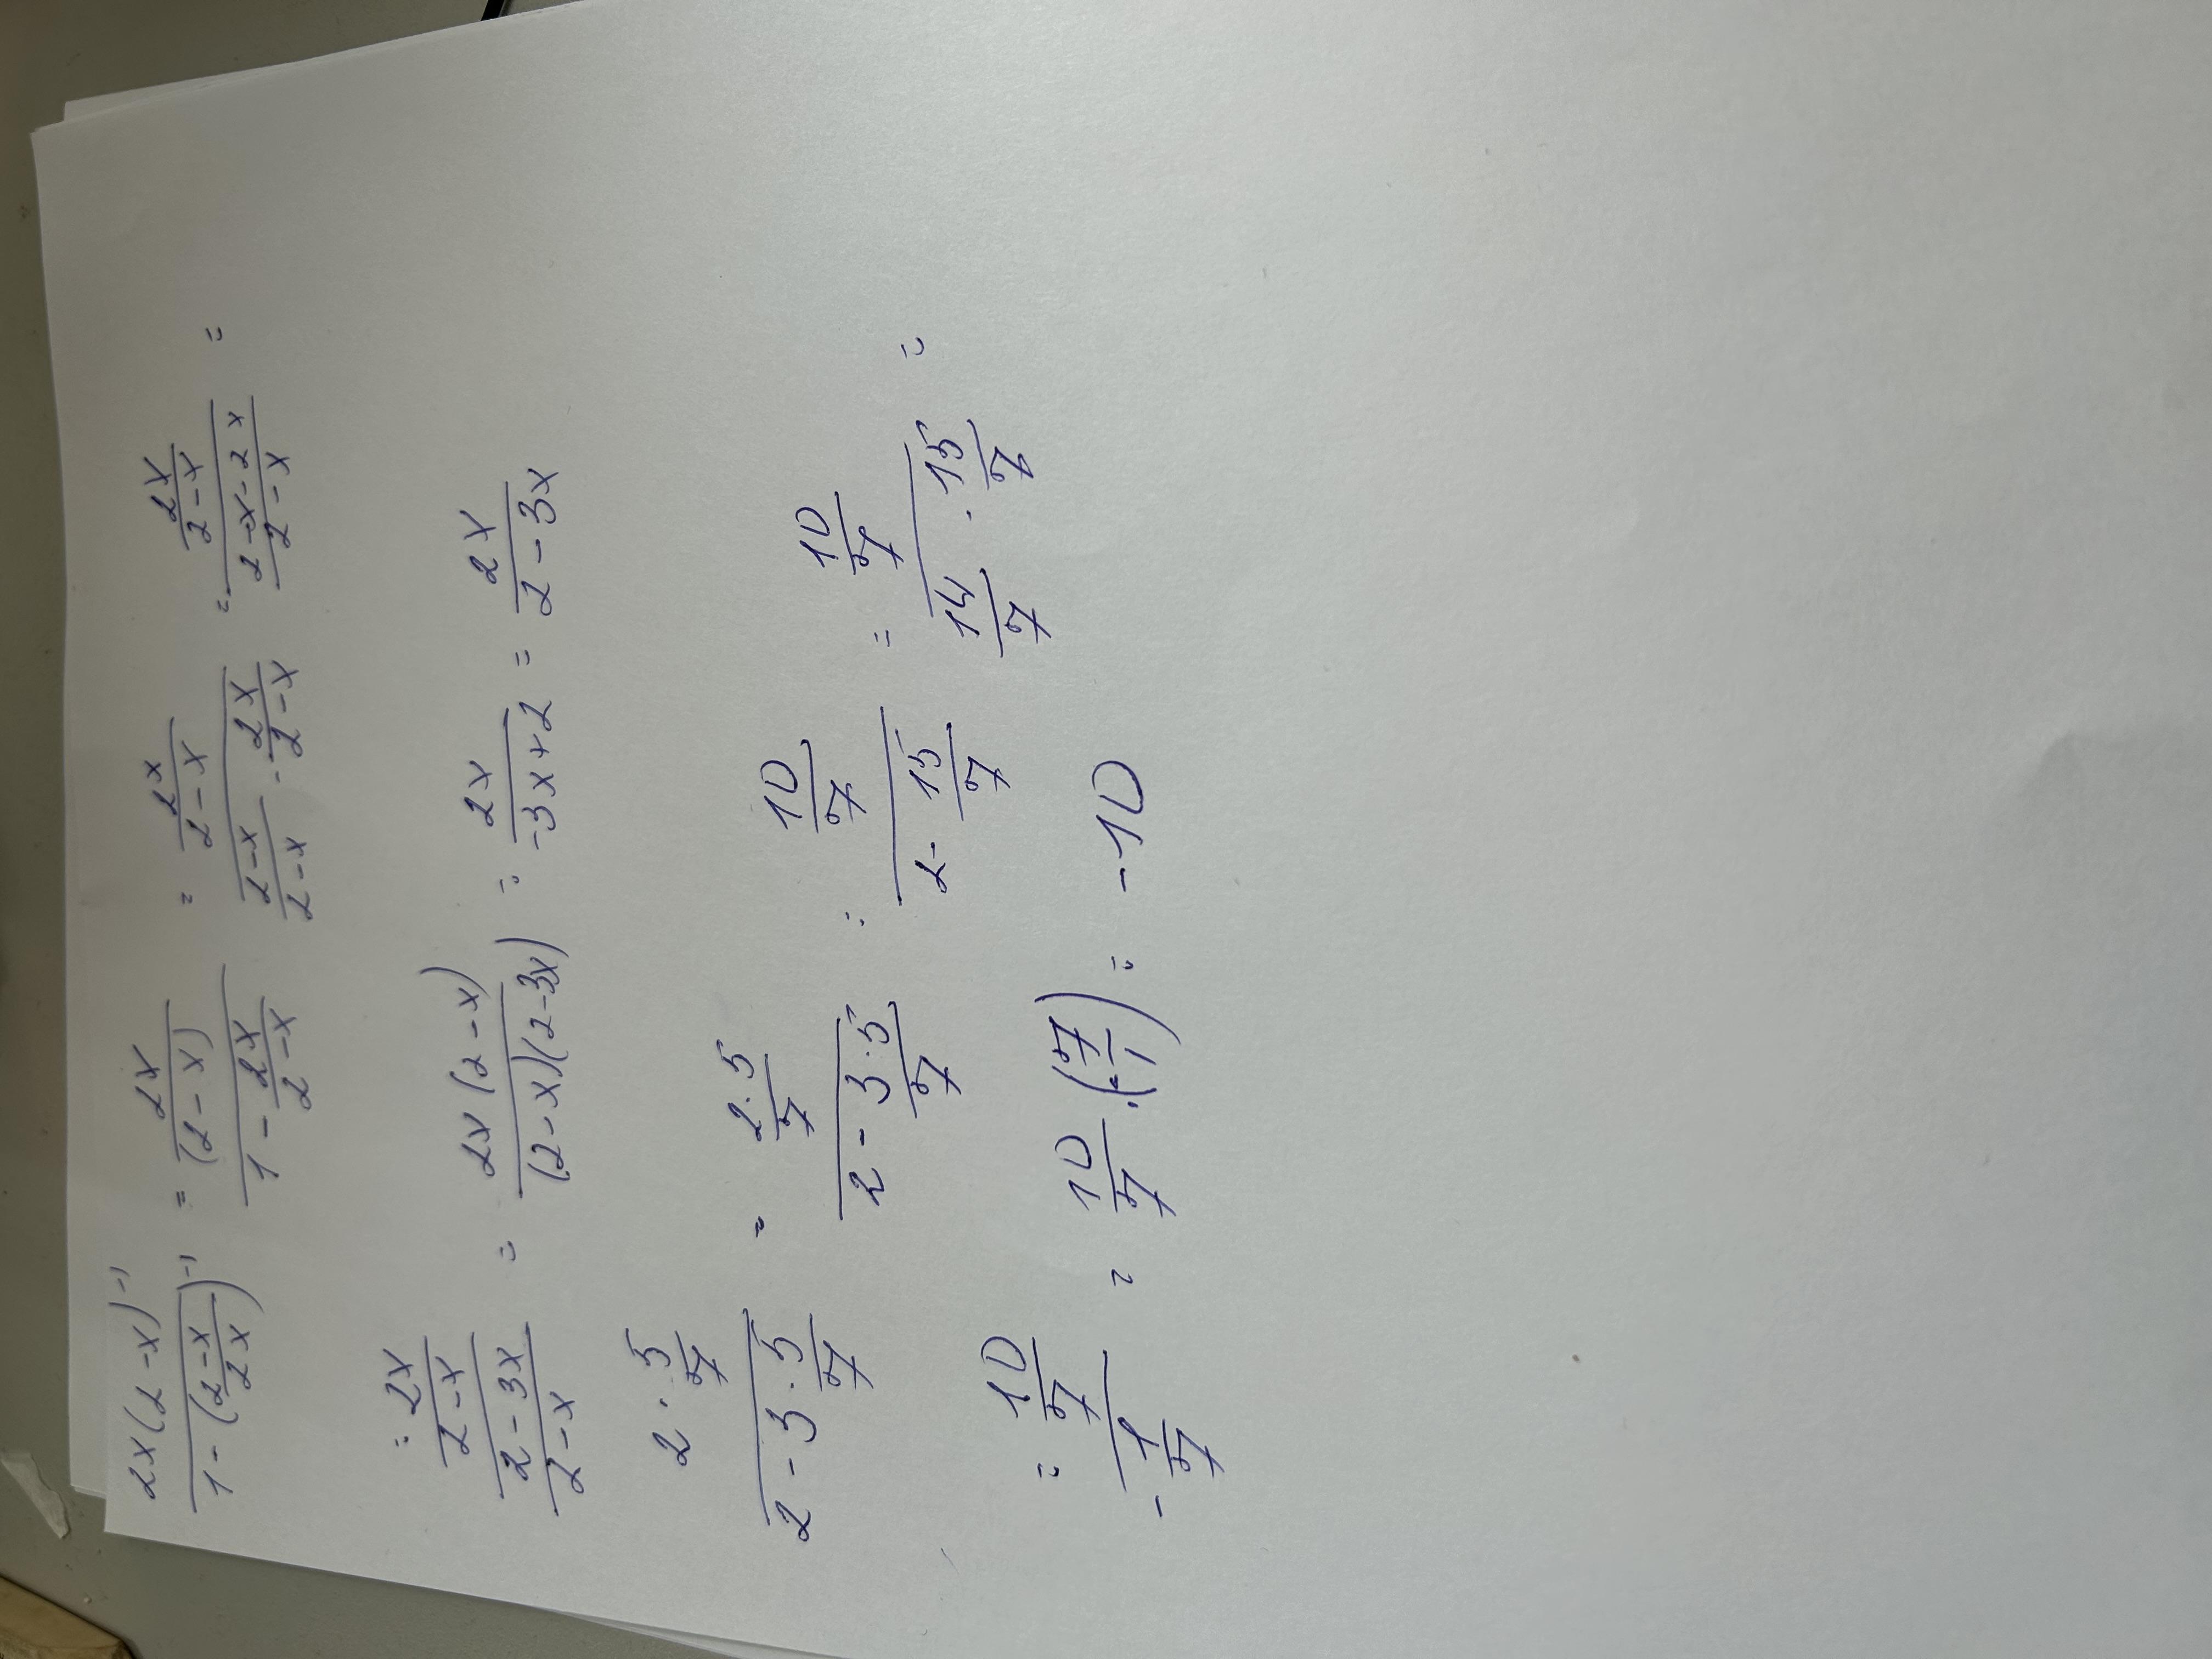 2x(2-x)^{-1} / (1-((2-x)/(2x))^{-1}) = (2x/(2-x)) / (1-2x/(2-x)) = (2x/(2-x)) / ((2-x)/(2-x) - 2x/(2-x)) = (2x/(2-x)) / ((2-x-2x)/(2-x)) =
= (2x/(2-x)) / ((2-3x)/(2-x)) = 2x(2-x) / ((2-x)(2-3x)) = 2x/(-3x+2) = 2x/(2-3x)
(2·5/7) / (2-3·5/7) = ((2·5)/7) / (2-(3·5)/7) = (10/7) / (2-15/7) = (10/7) / (14/7 - 15/7) =
= (10/7) / (-1/7) = 10/7·(-7/1) = -10